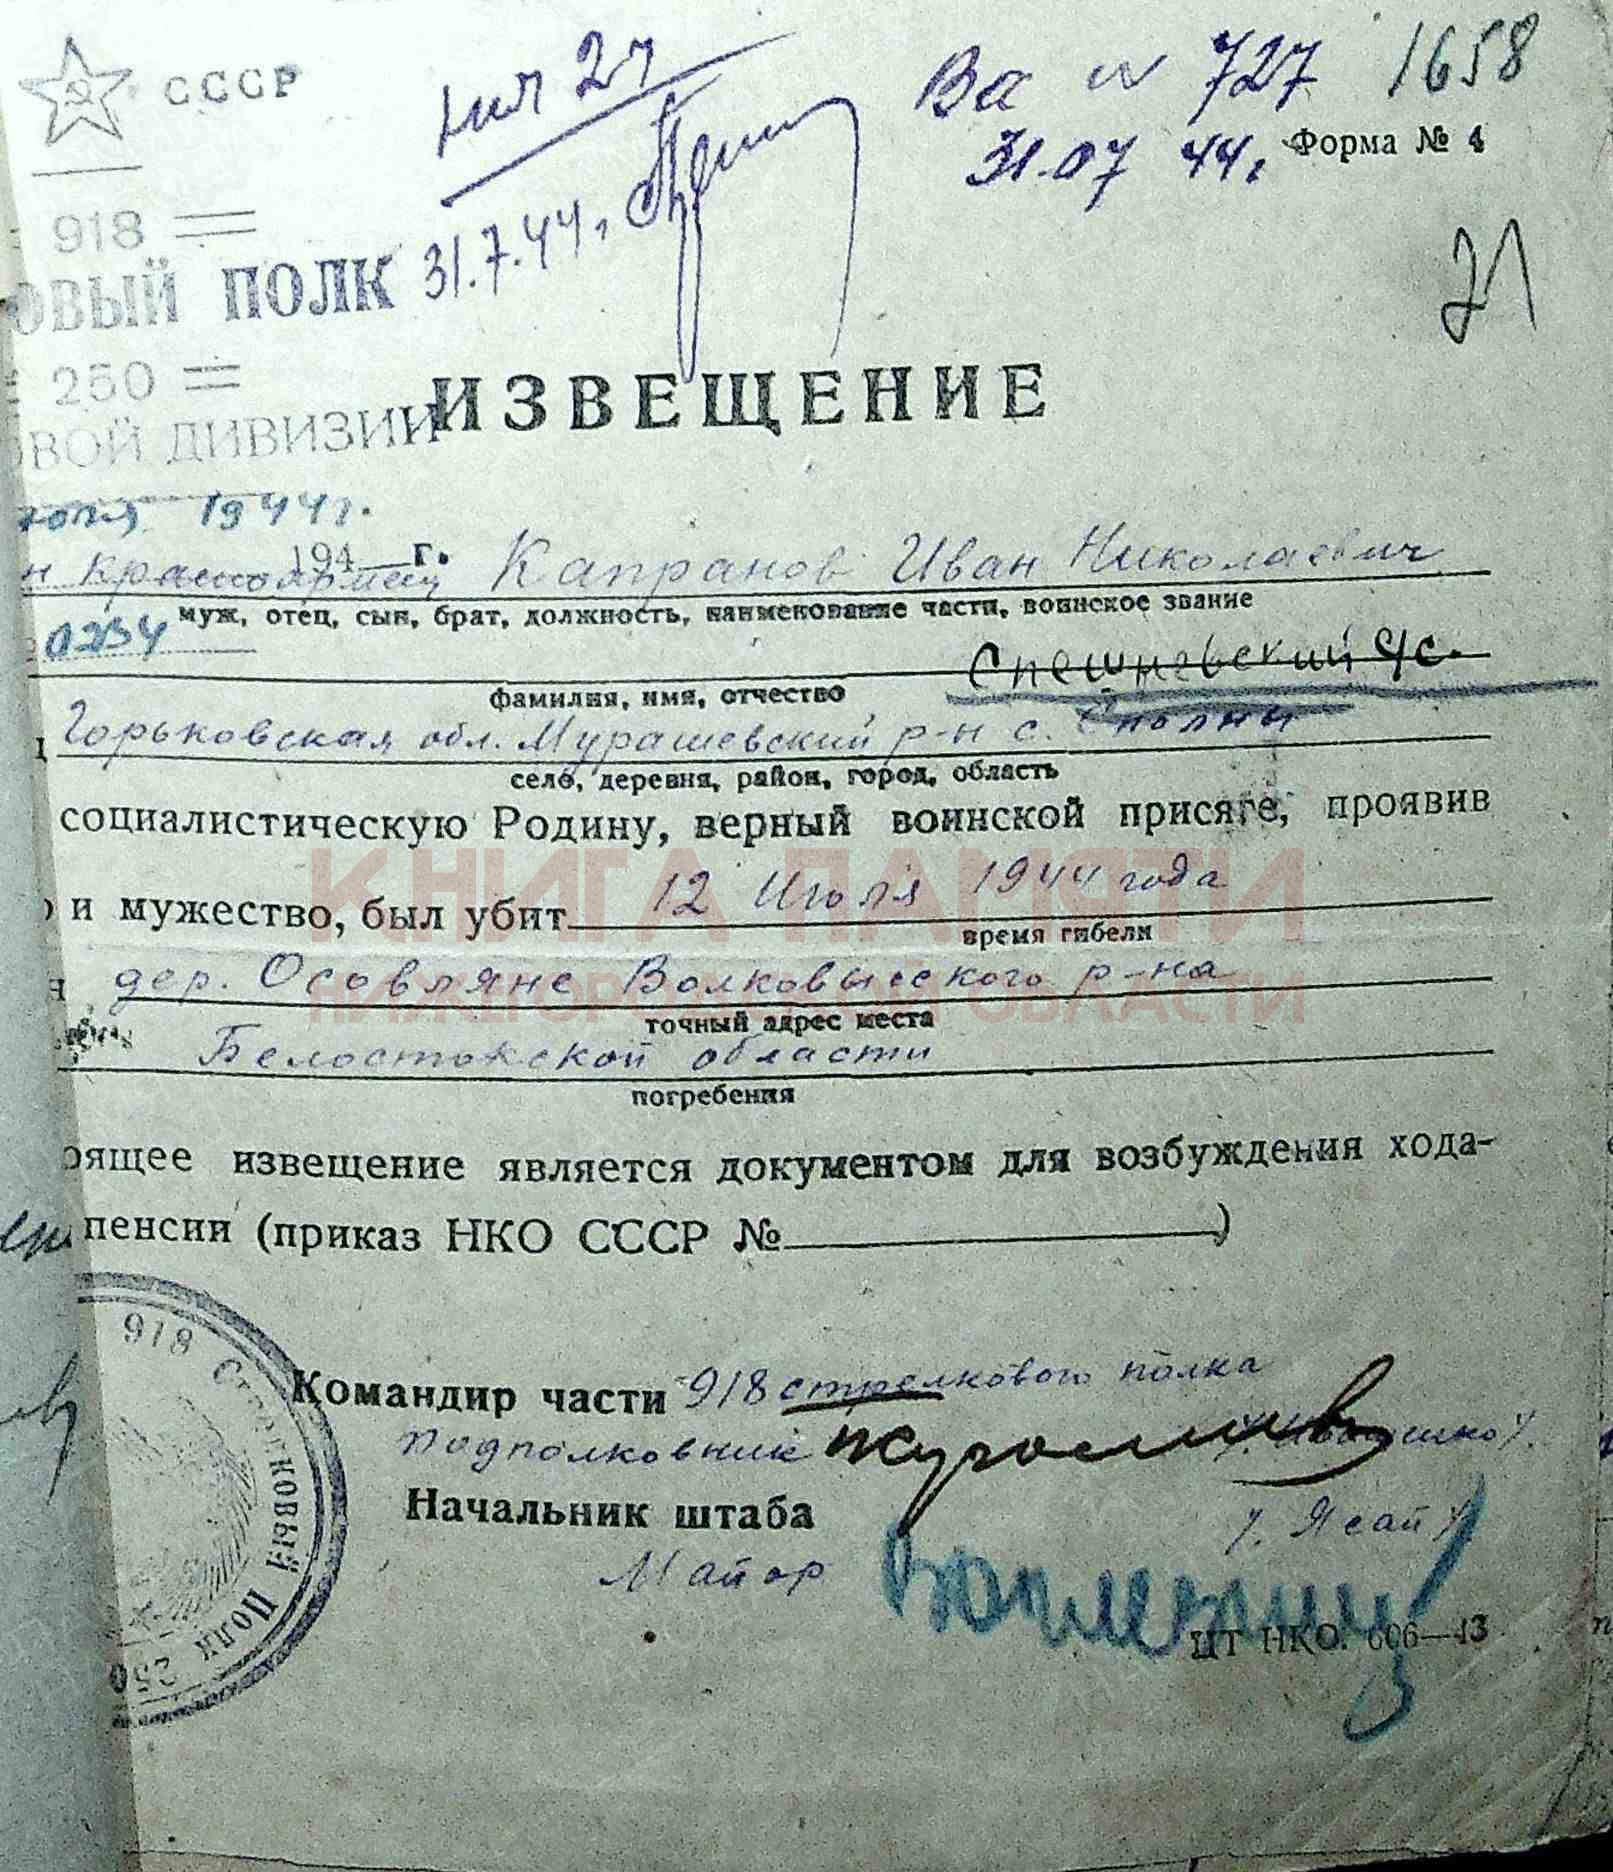 СССР
Вх № 727 1658
31.07 44г. Форма № 4
31.7.44г.
21
918
ОВЫЙ ПОЛК
250
ВОЙ ДИВИЗИИ
ИЗВЕЩЕНИЕ
июля 1944г.
194 г.
н красноармеец Капранов Иван Николаевич
муж, отец, сын, брат, должность, наименование части, воинское звание
0234
Спешневский с/с.
фамилия, имя, отчество
Горьковская обл. Мурашевский р-н с.
село, деревня, район, город, область
социалистическую Родину, верный воинской присяге, проявив
о и мужество, был убит 12 Июля 1944 года
время гибели
н дер. Осовляне Волковысского р-на
точный адрес места
Белостокской области
погребения
оящее извещение является документом для возбуждения хода-
пенсии (приказ НКО СССР № )
918 Стрелковый Полк 250
Командир части 918 стрелкового полка
подполковник
Начальник штаба
Майор
ЦТ НКО. 606—43
КНИГА ПАМЯТИ
НИЖЕГОРОДСКОЙ ОБЛАСТИ